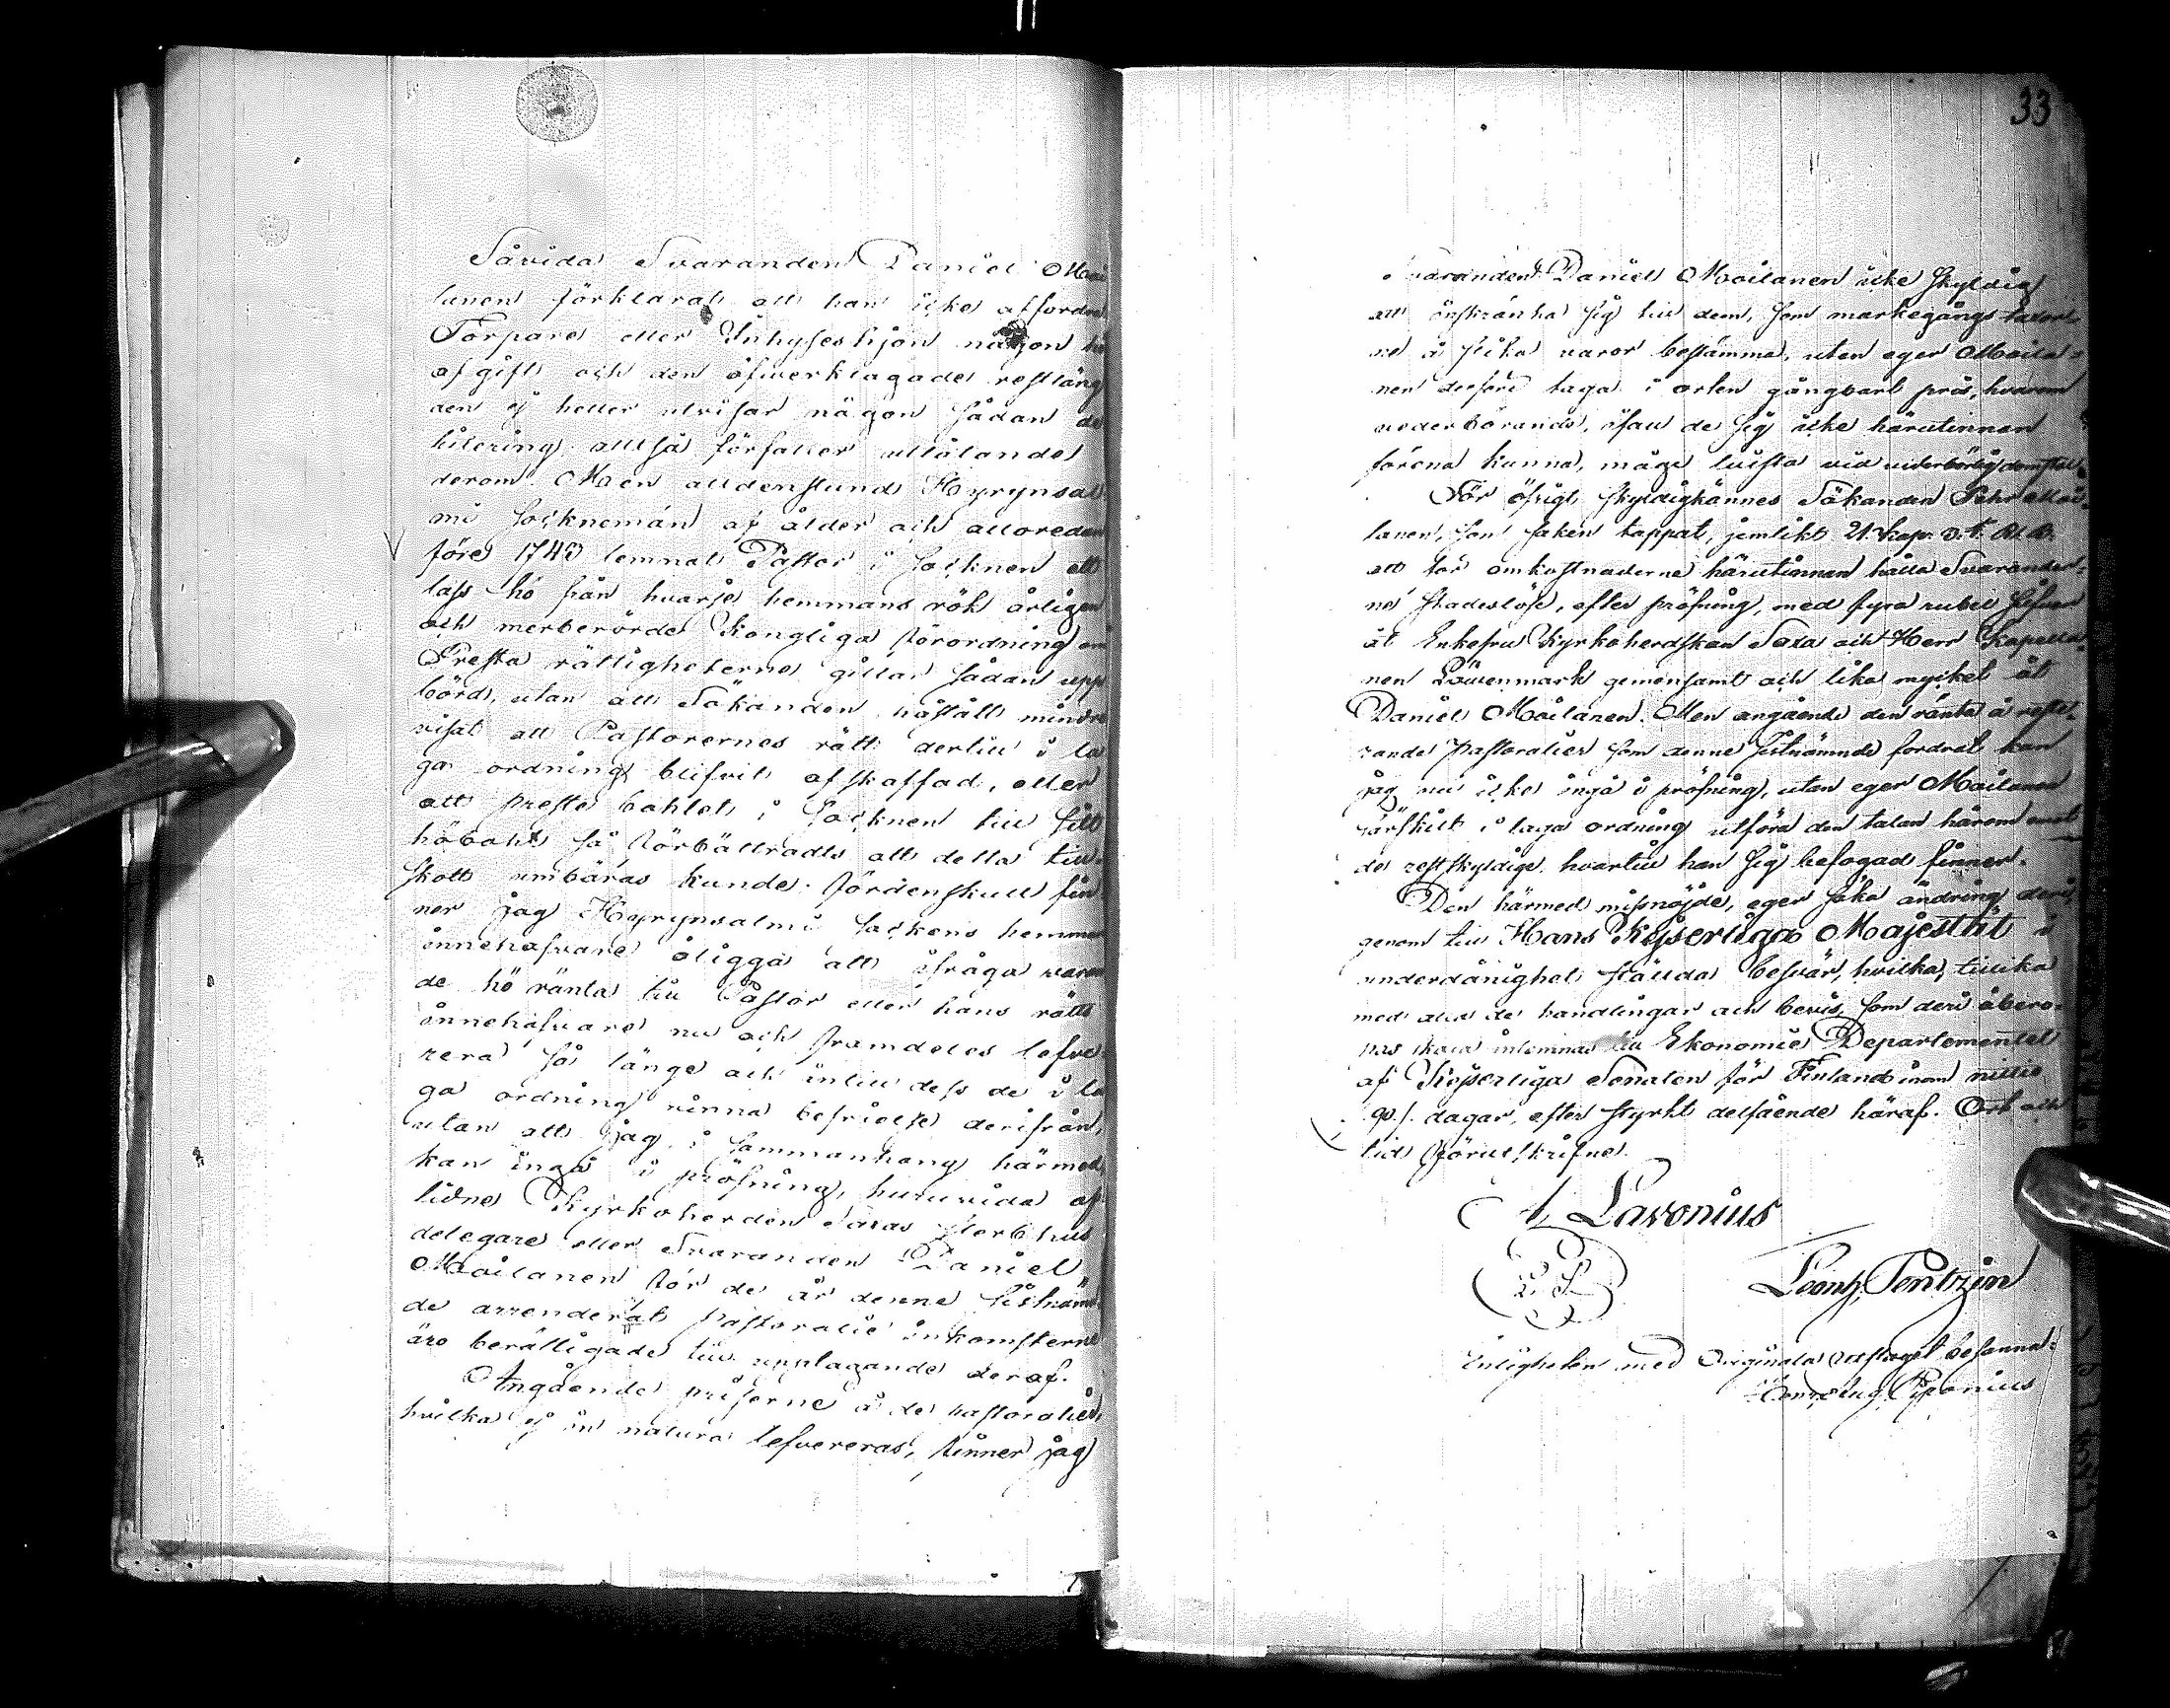 Såvida Svaranden Daniel Moi
lanen förklarat att han icke affordrat
Torpare eller Inhyseshjon någon hö
afgift och den öfverklagade restläng
den ej heller utvisar någon sådan de
bitering alltså förfaller utlåtande
derom. Men alldenstund Hyrynsal
mi socknemän af ålder och alloredan
före 1743 lemnat Pastor i Socknen ett
lass hö från hvarje hemmans rök årligen
och merberörde Kongliga Förordning om
Presta rättigheterne gillar sådan upp
börd, utan att Sökanden påstått mindre
visat att Pastorernes rätt dertill i la
ga ordning blifvit afskaffad, eller
att preste bohlet i Socknen till sitt
höbohl så förbättrats att detta till
skott umbäras kunde. Fördenskull fin
ner jag Hyrynsalmi Sockens hemmans
innehafvare åligga att ifråga varan
de hö ränta till Pastor eller hans rätts
innehafvare nu och framdeles lefve
rera så länge och intill dess de i la
ga ordning vinna befrielse derifrån,
utan att jag i sammanhang härmed
kan ingå i pröfning, huruvida af
lidne Kyrkoherden Saxas sterbhus
delegare eller Svaranden Daniel
Moilanen för de år denne sistnämn
de arrenderat pastoralie inkomsterne
äro berättigade till upptagande deraf.
Angående priserne å de pastoralier,
hvilka ej in natura lefvereras, finner jag
33
Svaranden Daniel Moilanen icke skyldig
att inskränka sig till dem, som markegångs taxor-
ne å slika varor bestämma, utan eger Moila-
nen derföre taga i orten gångbart pris, hvarom
vederbörande, ifall de sig icke härutinnan
förena kunna, måge tvista vid vederbörlig domstol
För öfrigt skyldigkännes Sökanden Pehr Moi-
lanen, som saken tappat, jemlikt 21. Kap. 3. §. R. B.
att för omkostnaderne härutinnan hålla Svarander-
ne skadeslöse, efter pröfning, med fyra rubel Silfver
åt Enkefru Kyrkoherdskan Saxa och Herr Kapella-
nen gemensamt och lika mycket åt
Daniel Moilanen. Men angående den ränta å reste-
rande pastoralier som denne sistnämnde fordrat kan
jag nu icke ingå i pröfning, utan eger Moilanen
särskilt i laga ordning utföra den talan härom emot
de restskyldige, hvartill han sig befogad finner.
Den härmed missnöjde, eger söka ändring deri,
genom till Hans Kejserliga Majestät i
underdånighet ställda besvär, hvilka, tillika
med alla de handlingar och bevis, som deri åbero-
pas skola inlemnas till Ekonomie Departementet
af Kejserliga Senaten för Finland inom nittio
90./. dagar, efter styrkt delfående häraf. Ort och
tid förutskrifne.
A. Lavonius
L. S.
Leonh. Pentzin
Enligheten med Originala Utslaget befannat: